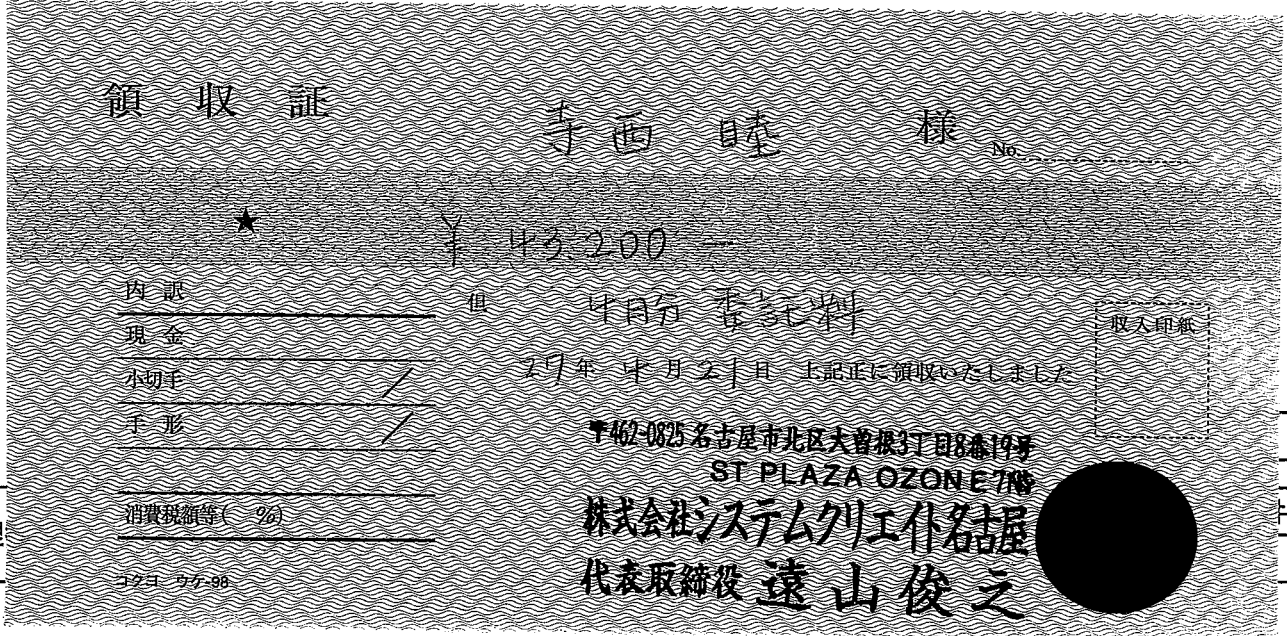 領収証
寺西 睦 様
No.
★
¥43,200－
内訳
現金
小切手
手形
消費税額等( %)
コクヨ ウケ-98
但 4月分 委託料
27年4月21日 上記正に領収いたしました
収入印紙
〒462-0825 名古屋市北区大曽根3丁目8番19号
ST PLAZA OZONE 7階
株式会社システムクリエイト名古屋
代表取締役 遠山俊之